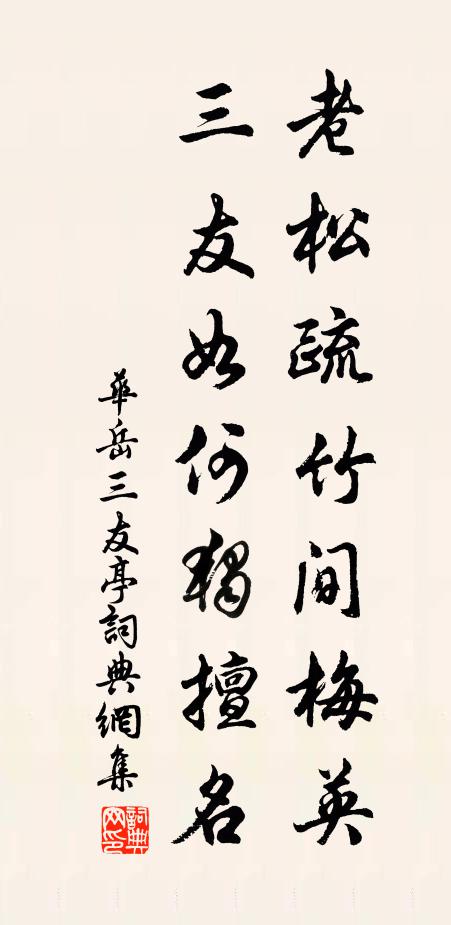 老松疏竹間梅英
三友如何獨擅名
華岳三友亭詞典網集
詞典網印